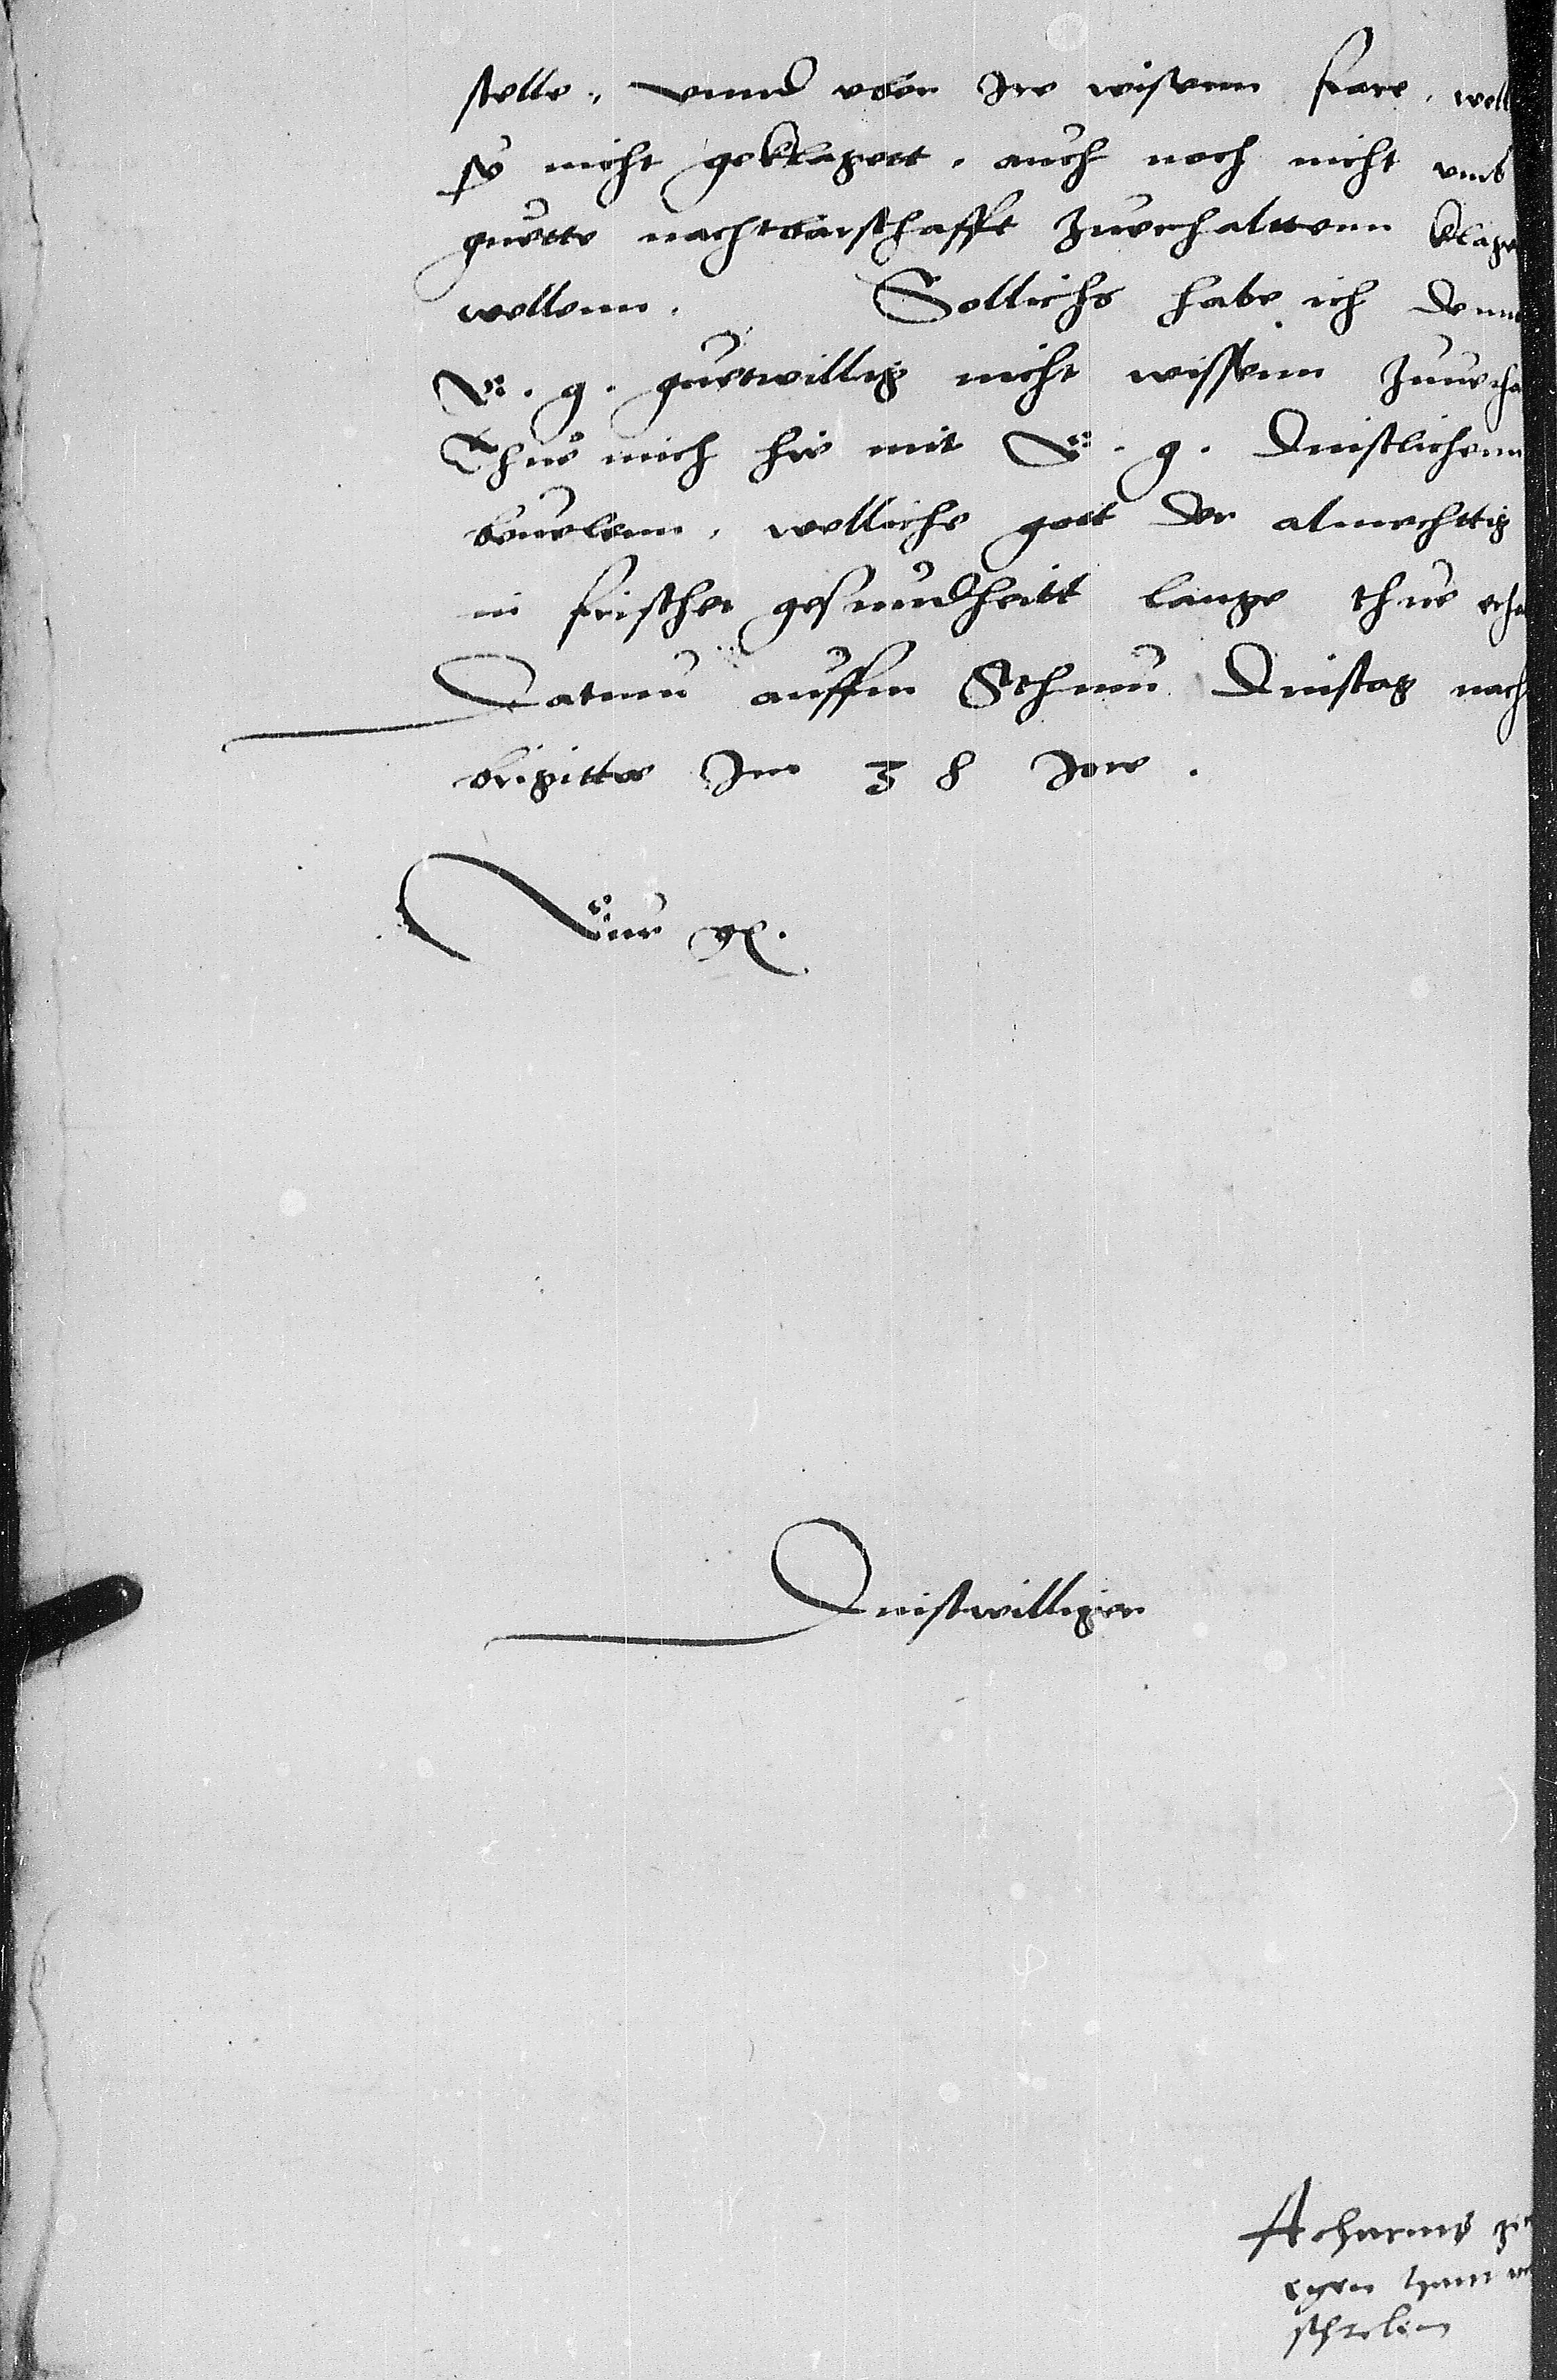 stelle, vnnd vber Ire wisenn fare, well
sy nicht geklagett, auch noch nicht vmb
guette nachtbarschafft zuerhaltenn klage
wellenn. Sollichs habe ich denn
E. g. guetwillig nicht wissenn zuuerha
Thue mich hie mit E. g. dinstlichenn
beuelenn, welliche gott der almechttig
in frischer gesundheitt lange thue erha
Datum auffm dinstag nach
brigitte Im 38 Jare.
Eur g.
Dinstwilliger